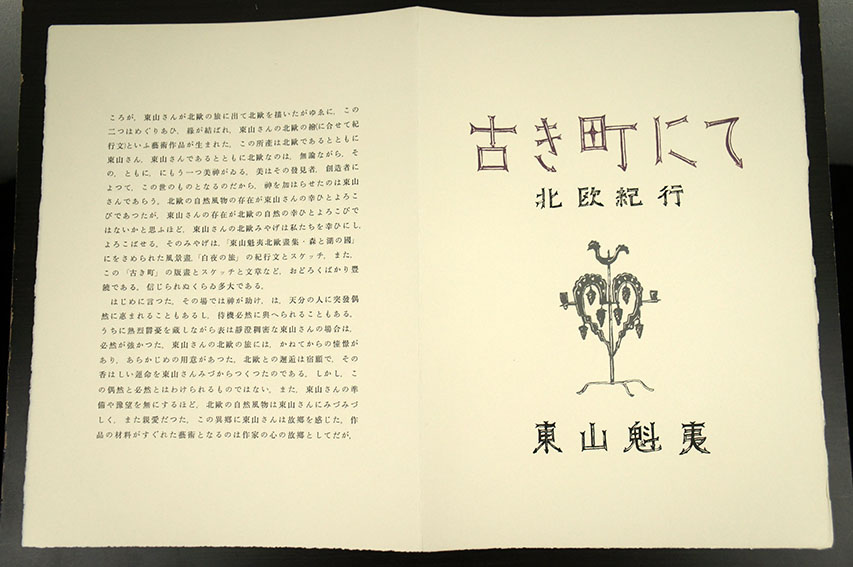 ころが，東山さんが北歐の旅に出て北歐を描いたがゆゑに，この
二つはめぐりあひ，緣が結ばれ，東山さんの北歐の繪（に合せて紀
行文）といふ藝術作品が生まれた．この所產は北歐であるとともに
東山さん，東山さんであるとともに北歐なのは，無論ながら，そ
の，ともに，にもう一つ美神がゐる．美はその發見者，創造者に
よつて，この世のものとなるのだから，神を加はらせたのは東山
さんであらう．北歐の自然風物の存在が東山さんの幸ひとよろこ
びであつたが，東山さんの存在が北歐の自然の幸ひとよろこびで
はないかと思ふほど，東山さんの北歐みやげは私たちを幸ひにし，
よろこばせる．そのみやげは，「東山魁夷北歐畫集・森と湖の國」
にをさめられた風景畫，「白夜の旅」の紀行文とスケッチ，また，
この「古き町」の版畫とスケッチと文章など，おどろくばかり豐
饒である．信じられぬくらゐ多大である．
はじめに言つた，その場では神が助け，は，天分の人に突發偶
然に惠まれることもあるし，待機必然に與へられることもある．
うちに熱烈鬱憂を藏しながら表は靜澄稠密な東山さんの場合は，
必然が強かつた．東山さんの北歐の旅には，かねてからの憧憬が
あり，あらかじめの用意があつた．北歐との邂逅は宿願で，その
香はしい運命を東山さんみづからつくつたのである．しかし，こ
の偶然と必然とはわけられるものではない．また，東山さんの準
備や豫望を無にするほど，北歐の自然風物は東山さんにみづみづ
しく，また親愛だつた．この異鄕に東山さんは故鄕を感じた．作
品の材料がすぐれた藝術となるのは作家の心の故鄕としてだが，
古き町にて
北欧紀行
東山魁夷